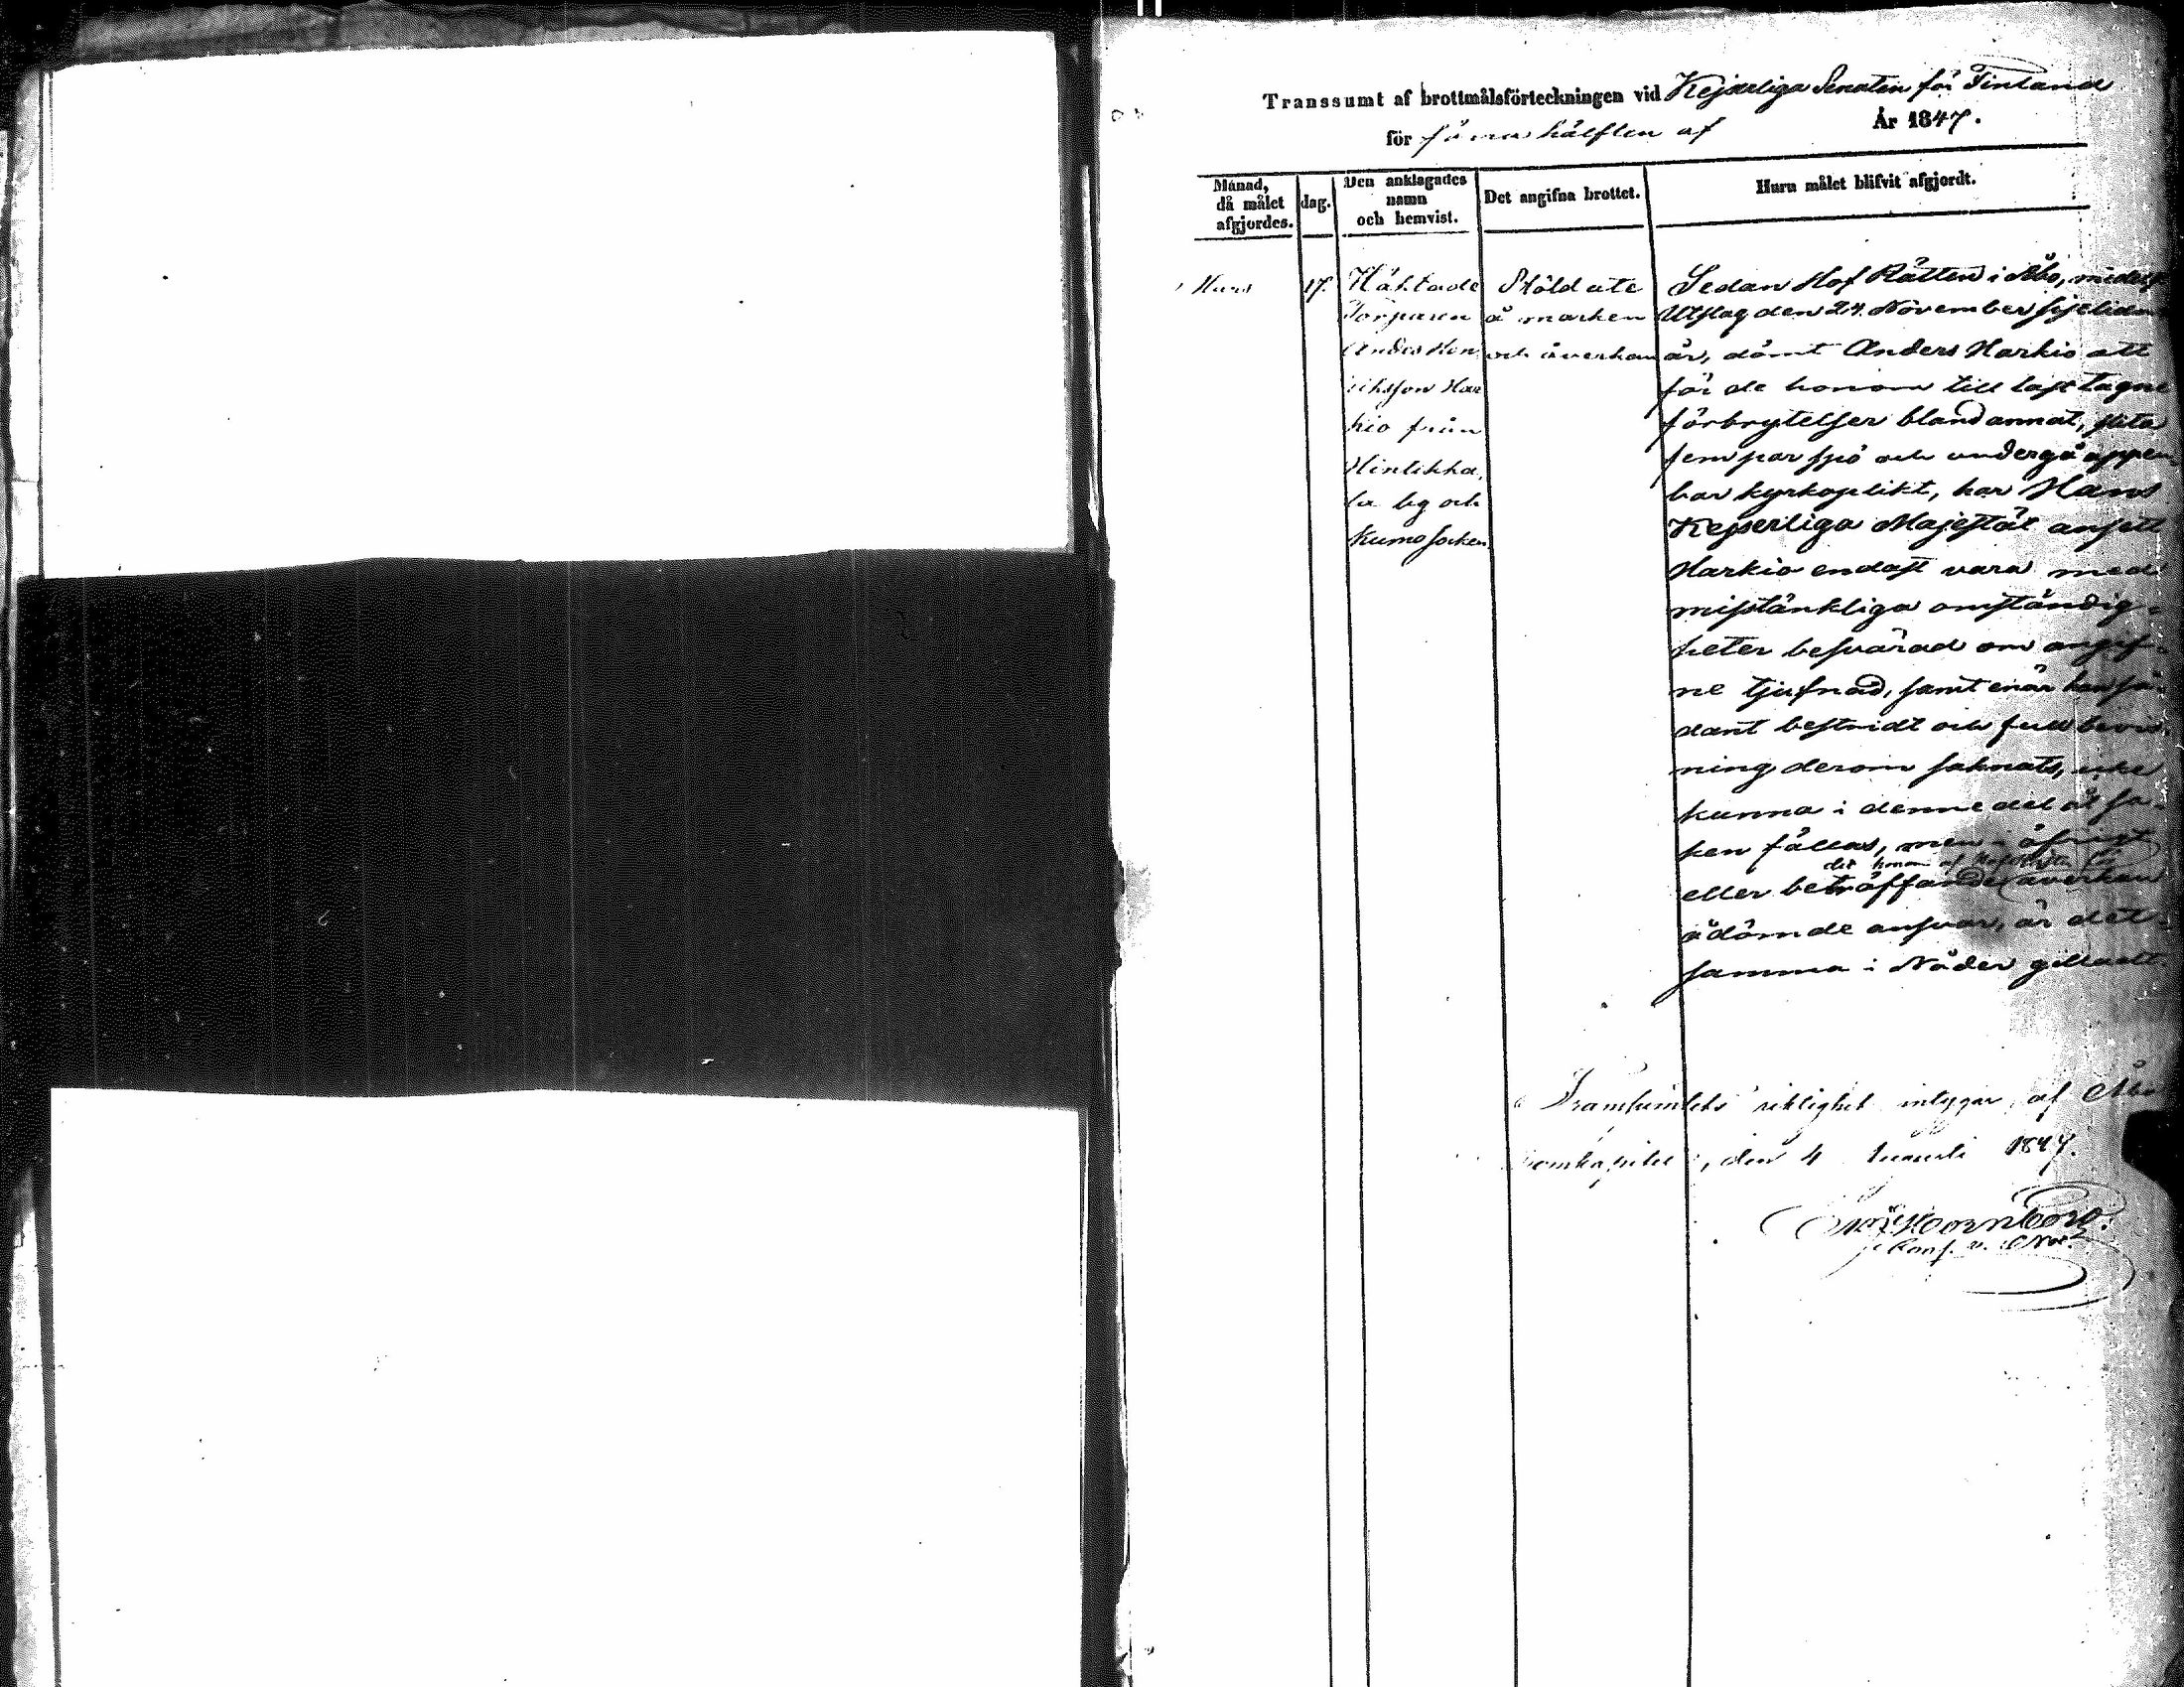 Transsumt af brottmålsförteckningen vid Kejserliga Senaten för Finland
för förra hälften af År 1847.
Månad, då målet afgjordes.
dag.
Den anklagades namn och hemvist.
Det angifna brottet.
Huru målet blifvit afgjordt.
Mars
17.
Häktade
Torparen
Anders Hen
riksson Har
kio från
Hintikka,
la by och
Kumo socken
Stöld ute
å marken
och åverkan
Sedan Hof Rätten i Åbo, medelst
Utslag den 24. November sistlidne
år, dömt Anders Harkio att
för de honom till last tagne
förbrytelser bland annat, slita
fem par spö och undergå uppen-
bar kyrkoplikt, har Hans
Kejserliga Majestät ansett
Harkio endast vara med
misstänkliga omständig-
heter besvärad om angif-
ne tjufnad, samt enär han så-
dant bestridt och full bevis-
ning derom saknats, icke
kunna i denne del åt sa-
ken fällas, men i öfrigt
det honom af Hofrätten för
eller beträffande åverkan
ådömde ansvar, är det-
samma i Nåder gilladt
Transsumtets riktighet intygar, af Åbo
Domkapitel, den 4 1847.